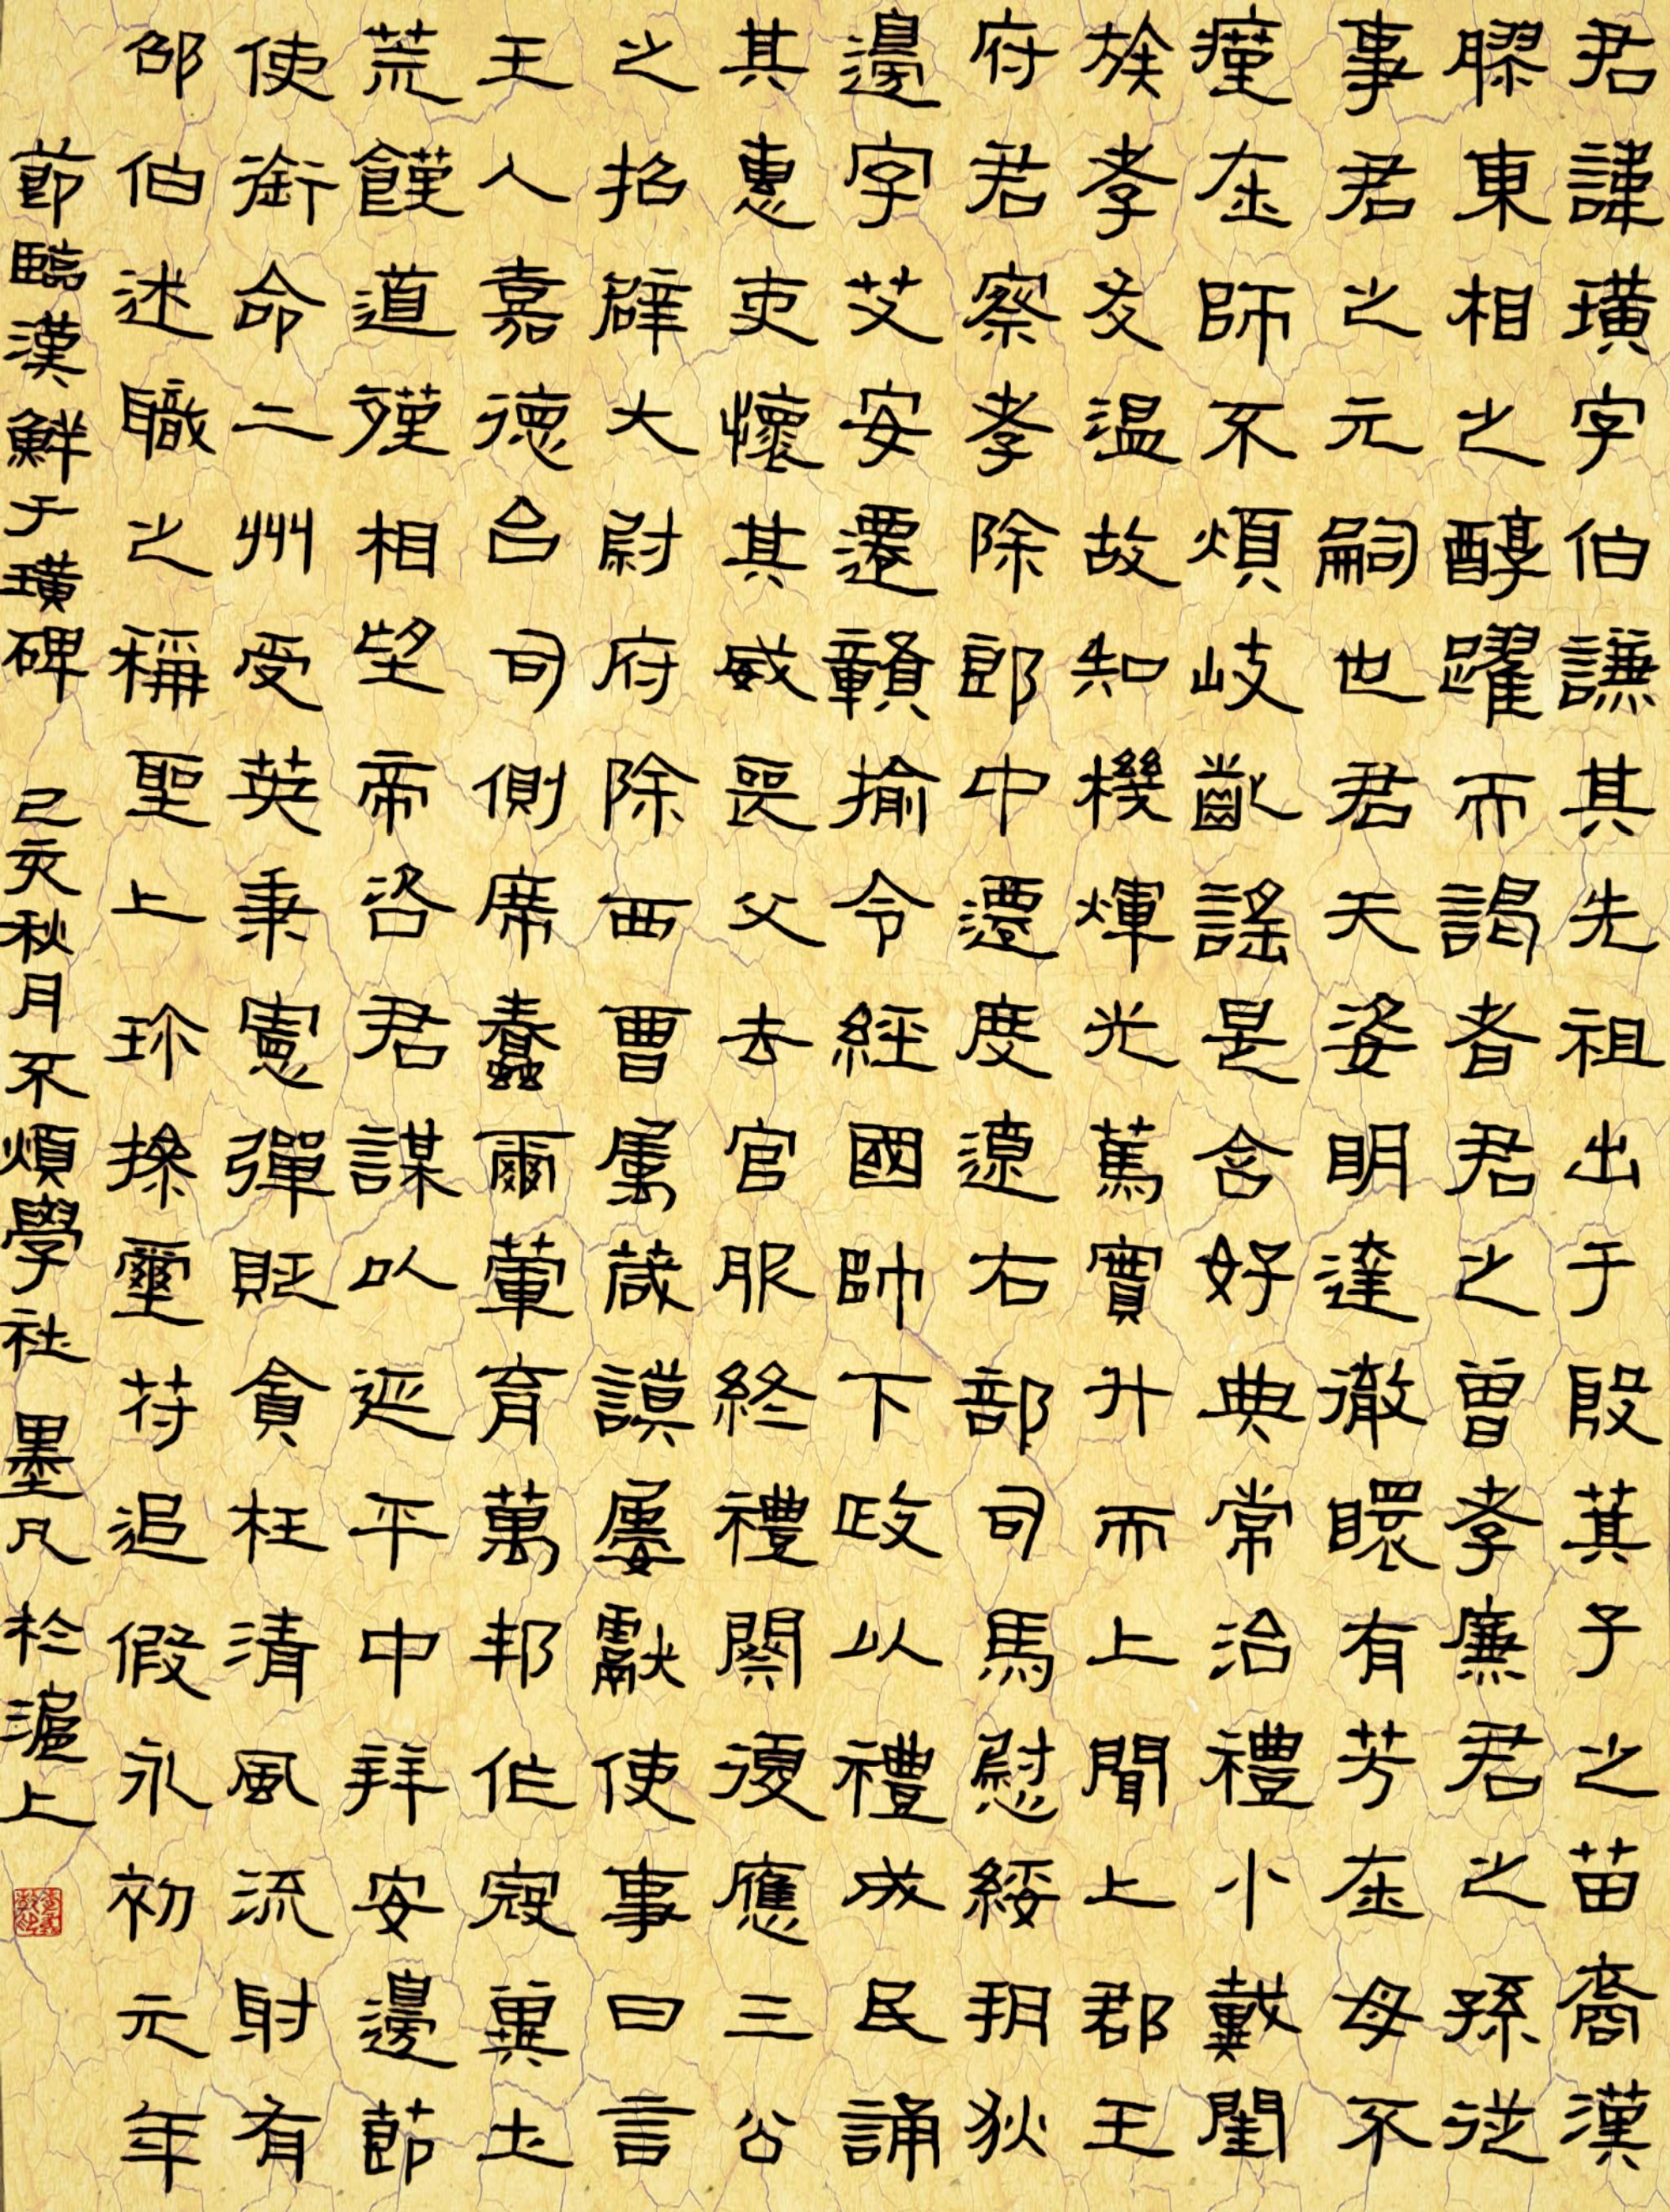 君諱璜字伯謙其先祖出于殷萁子之苗裔漢
膠東相之醇躍而謁者君之曾孝廉君之孫從
事君之元嗣也君天姿明達徹睘有芳在母不
瘽在師不煩岐齔謠是含好典常治禮小戴閨
族孝友温故知機煇光萬實升而上聞上郡王
府君察孝除郎中遷度遼右部司馬慰綏玥狄
邊字艾安遷贛揄令經國帥下政以禮成民誦
其惠吏懷其威喪父去官服終禮闋復應三公
之招辟大尉府除西曹屬葴謨屢獻使事曰言
王人嘉德台司側席蠢爾葷育萬邦作寇冀土
荒饉道殣相望帝咨君謀以延平中拜安邊節
使銜命二州受英秉憲彈貶貪枉清風流射有
邵伯述職之稱聖上珎操璽苻追假永初元年
節臨漢鮮于璜碑 己亥秋月不煩學社 墨凡於滬上